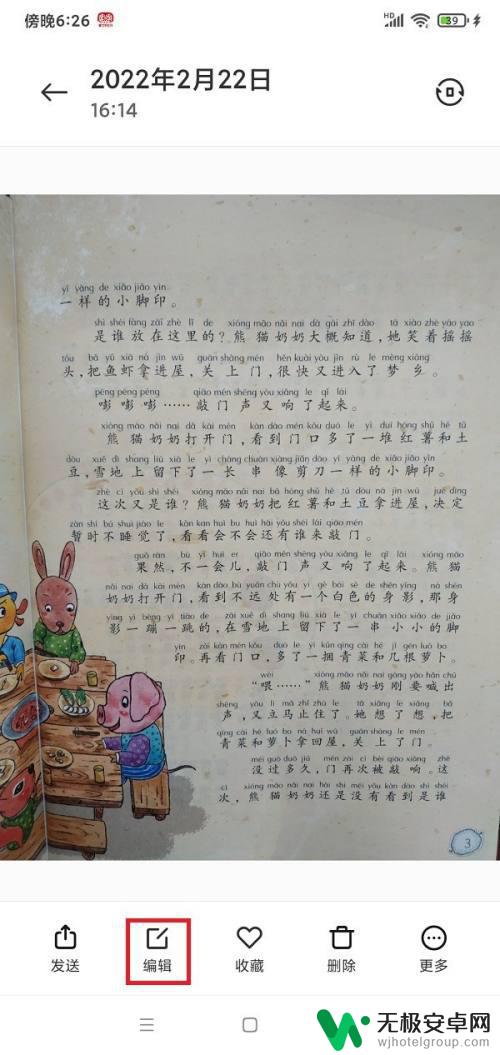 傍晚6:26
HD
39
2022年2月22日
16:14
yī yàng de xiǎo jiǎo yìn
一样的小脚印。
shì shéi fàng zài zhè lǐ de xióng māo nǎi nai dà gài zhī dào tā xiào zhe yáo yao
是谁放在这里的?熊猫奶奶大概知道,她笑着摇摇
tóu bǎ yú xiā ná jìn wū guān shàng mén hěn kuài yòu jìn rù le mèng xiāng
头,把鱼虾拿进屋,关上门,很快又进入了梦乡。
pēng pēng pēng qiāo mén shēng yòu xiǎng le qǐ lái
嘭嘭嘭……敲门声又响了起来。
xióng māo nǎi nai dǎ kāi mén kàn dào mén kǒu duō le yī duī hóng shǔ hé tǔ
熊猫奶奶打开门,看到门口多了一堆红薯和土
dòu xuě dì shang liú xià le yī cháng chuàn xiàng jiǎn dāo yī yàng de xiǎo jiǎo yìn
豆,雪地上留下了一长串像剪刀一样的小脚印。
zhè cì yòu shì shéi xióng māo nǎi nai bǎ hóng shǔ hé tǔ dòu ná jìn wū jué dìng
这次又是谁?熊猫奶奶把红薯和土豆拿进屋,决定
zàn shí bù shuì jiào le kàn kan huì bu huì hái yǒu shéi lái qiāo mén
暂时不睡觉了,看看会不会还有谁来敲门。
guǒ rán bù yī huì er qiāo mén shēng yòu xiǎng le qǐ lái xióng māo
果然,不一会儿,敲门声又响了起来。熊猫
nǎi nai dǎ kāi mén kàn dào bù yuǎn chù yǒu yī gè bái sè de shēn yǐng nà shēn
奶奶打开门,看到不远处有一个白色的身影,那身
yǐng yī bèng yī tiào de zài xuě dì shang liú xià le yī chuàn xiǎo xiǎo de jiǎo
影一蹦一跳的,在雪地上留下了一串小小的脚
yìn zài kàn mén kǒu duō le yī kǔn qīng cài hé jǐ gēn luó bo
印。再看门口,多了一捆青菜和几根萝卜。
wèi xióng māo nǎi nai gāng yào hǎn chū
“喂……”熊猫奶奶刚要喊出
shēng yòu lì mǎ zhǐ zhù le tā xiǎng le xiǎng bǎ
声,又立马止住了。她想了想,把
qīng cài hé luó bo ná huí wū guān shàng le mén
青菜和萝卜拿回屋,关上了门。
méi guò duō jiǔ mén zài cì bèi qiāo xiǎng zhè
没过多久,门再次被敲响。这
cì xióng māo nǎi nai hái shi méi yǒu kàn dào shì shéi
次,熊猫奶奶还是没有看到是谁
3
发送 编辑 收藏 删除 更多
无极安卓网
wjhotelgroup.com